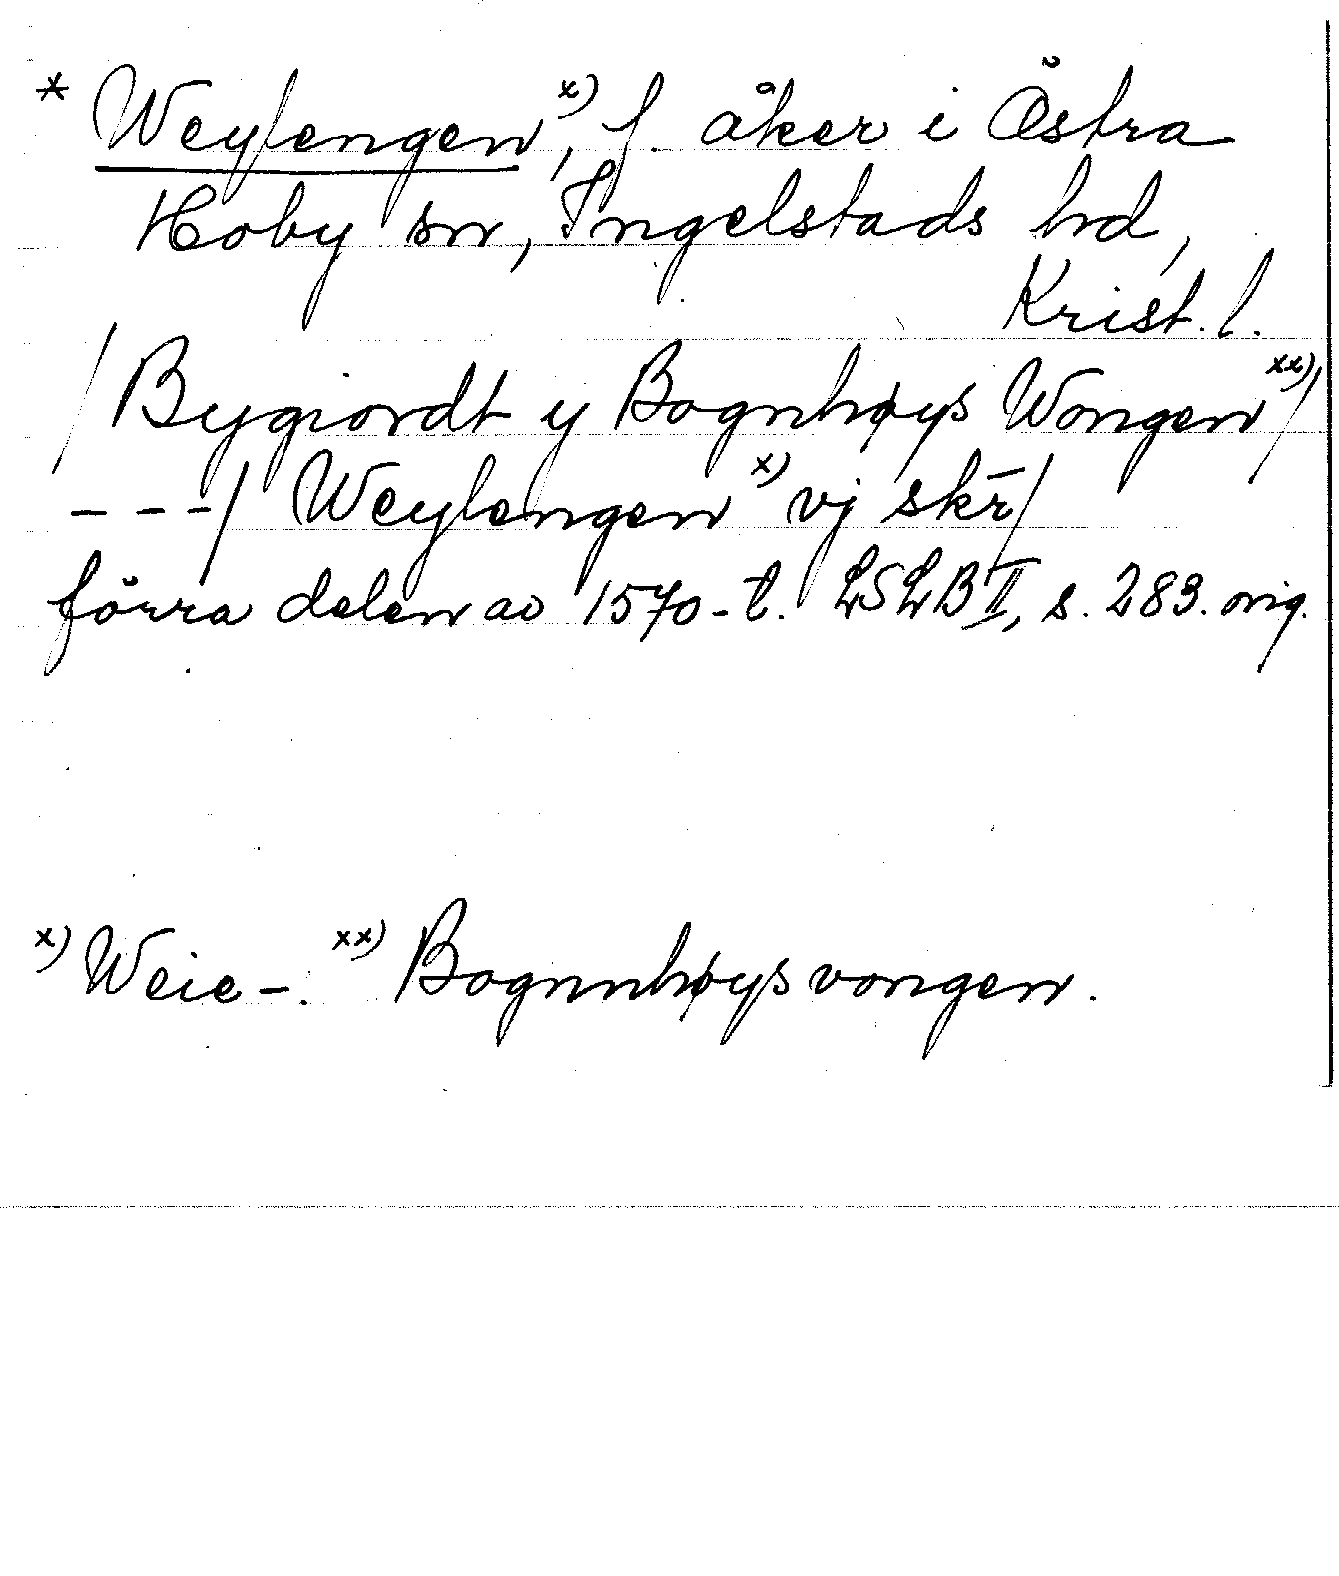 * Weylengen x), f. åker i Östra
Hoby sn, Ingelstads hd,
Krist. l.
/Bygiordt y Bognhøys Wongen xx)/
---/ Weylengen x) vj skr̄/
förra delen av 1570-t. LSLB II, s. 283. orig.
x) Weie-. xx) Bognnhøys vongen.